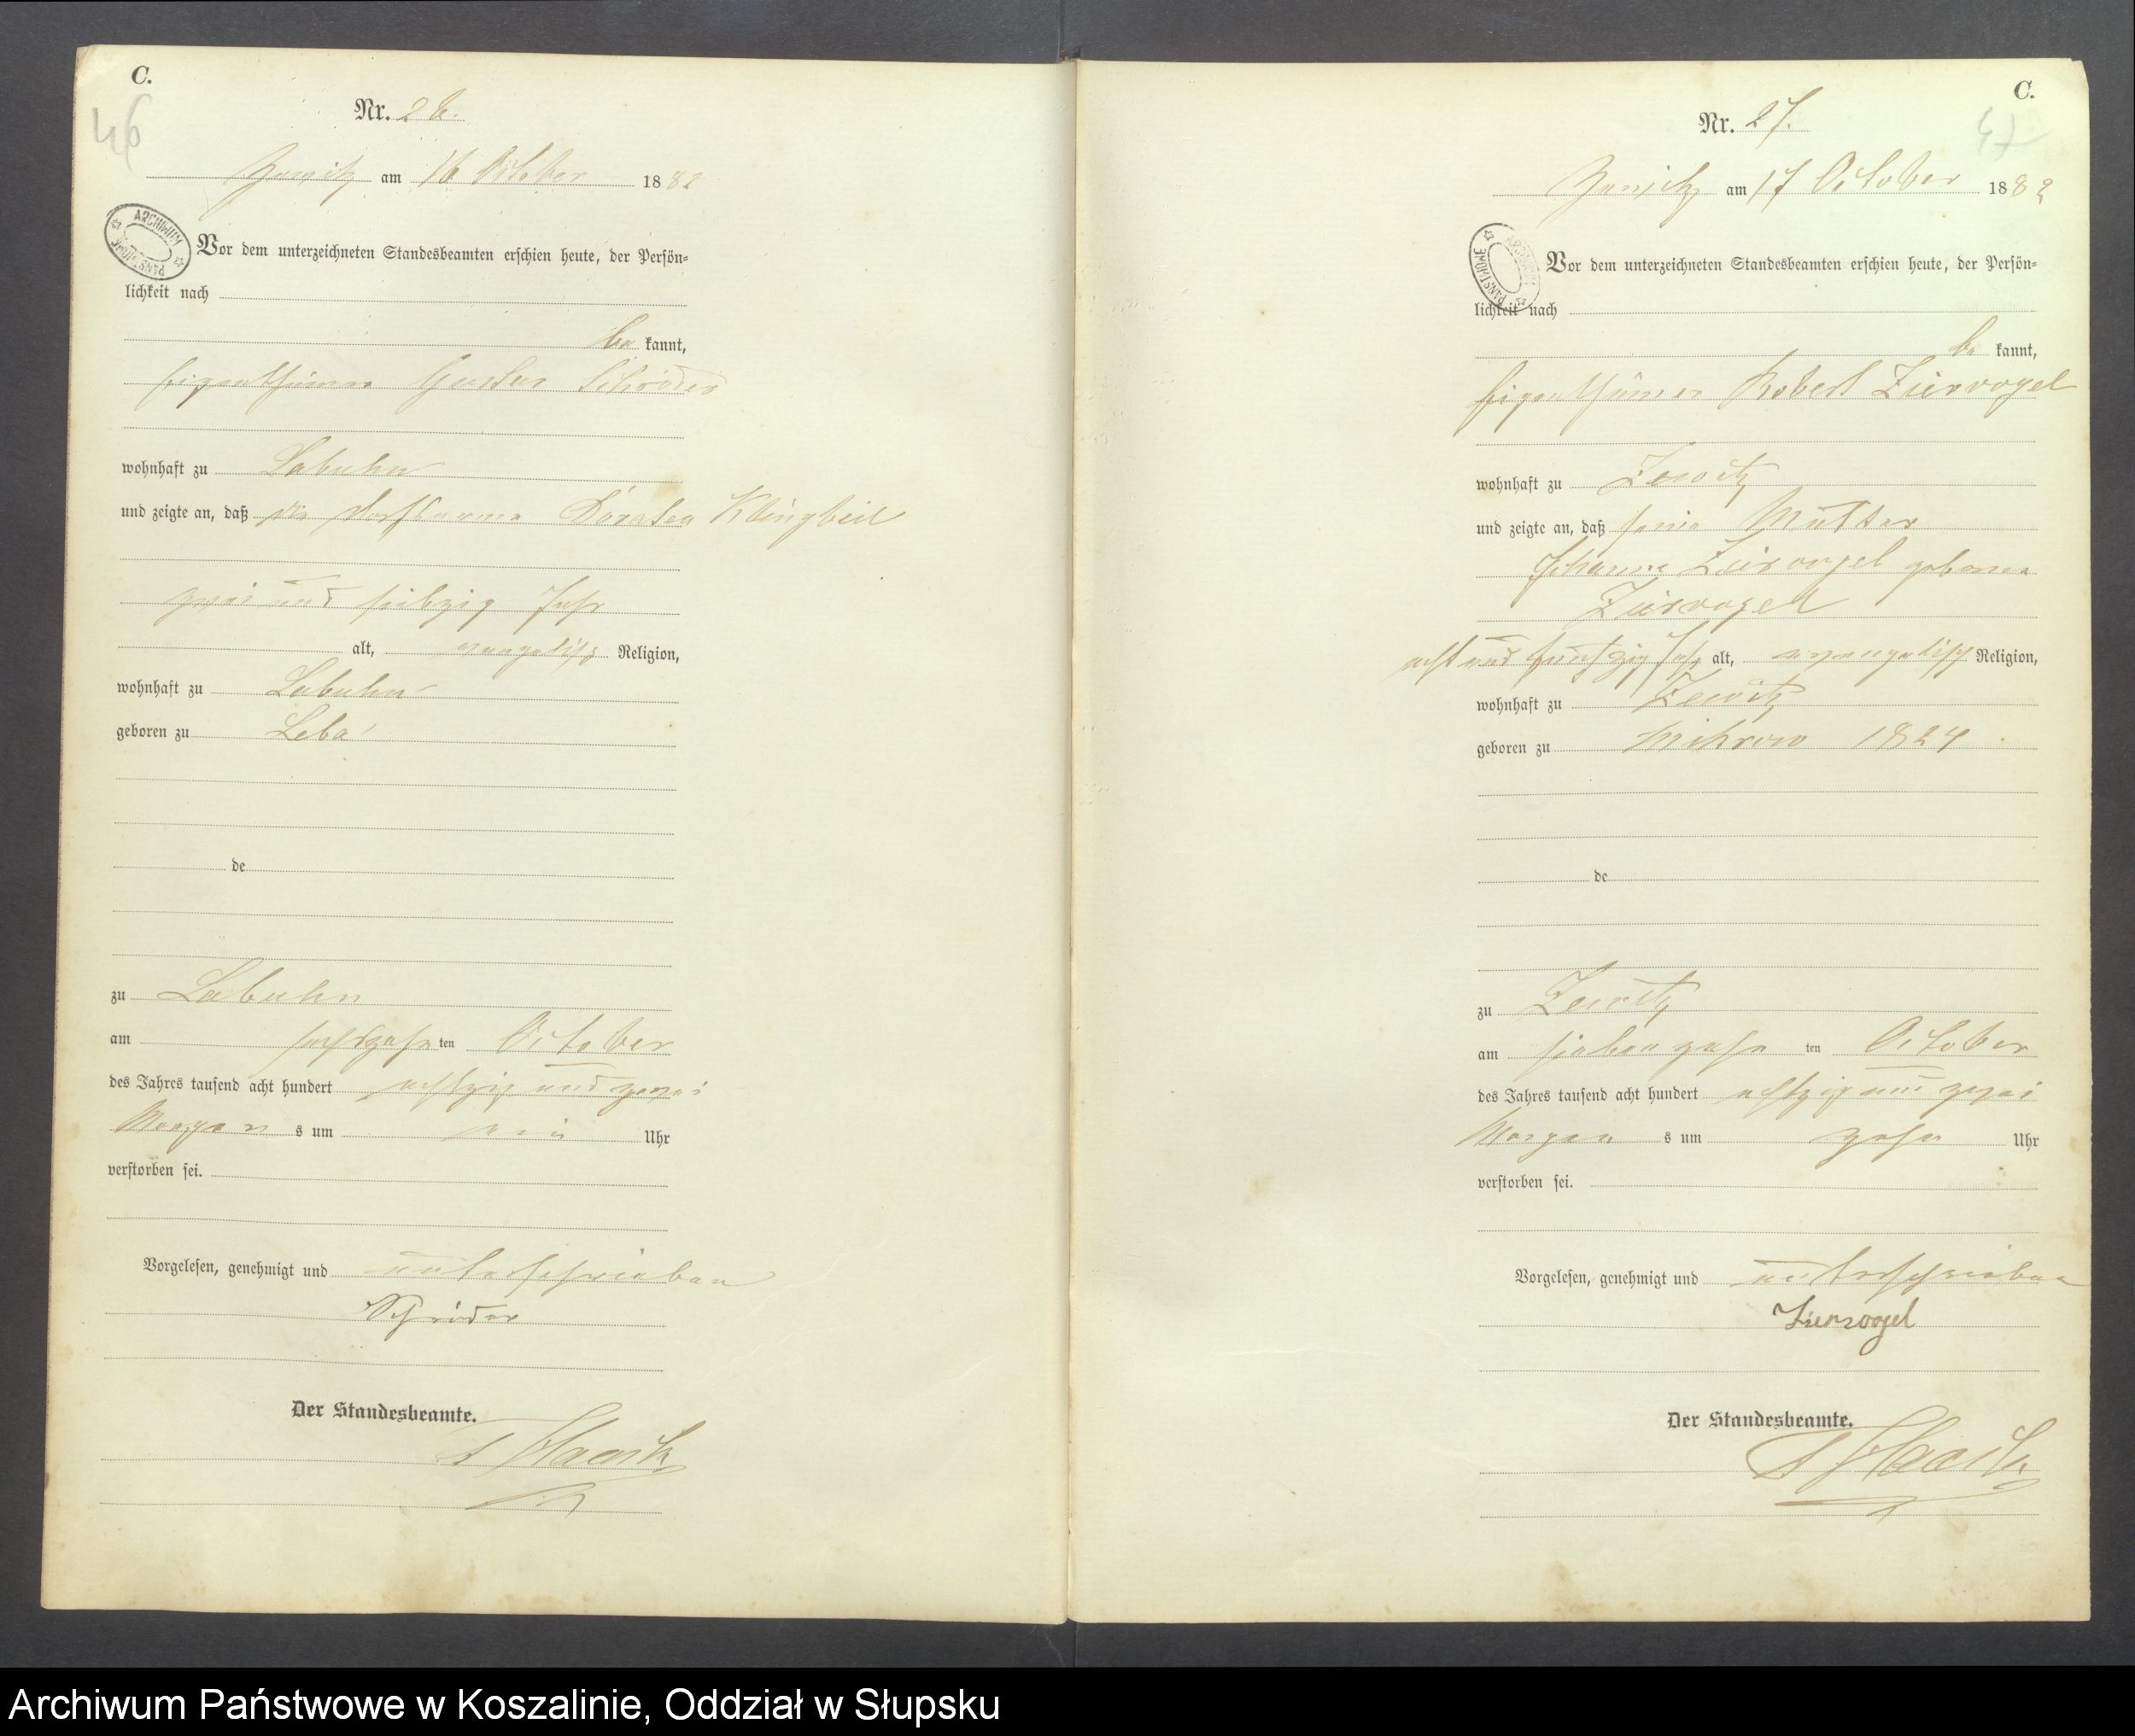 C.
46
Nr. 26.
am 16 October 1882
ARCHIWUM PAŃSTWOWE
Vor dem unterzeichneten Standesbeamten erschien heute, der Persön-
lichkeit nach
be kannt,
Eigenthümer Gustav Schröder
wohnhaft zu Labuhn
und zeigte an, daß die Dorfarme Dorathea Klingbeil
zwei und siebzig Jahr
alt, evangelisch Religion,
wohnhaft zu Labuhn
geboren zu Leba
de
zu Labuhn
am sechszehn ten October
des Jahres tausend acht hundert achtzig und zwei
Morgen s um Uhr
verstorben sei.
Vorgelesen, genehmigt und unterschrieben
Schröder
Der Standesbeamte.
C.
47
Nr. 27.
am 17 October 1882
ARCHIWUM PAŃSTWOWE
Vor dem unterzeichneten Standesbeamten erschien heute, der Persön-
lichkeit nach
be kannt,
Eigenthümer Robert Ziervogel
wohnhaft zu Zewitz
und zeigte an, daß seine Mutter
Johanne Ziervogel geborene
Ziervogel
acht und funfzig Jahr alt, evangelisch Religion,
wohnhaft zu Zewitz
geboren zu Mikrow 1824
de
zu Zewitz
am siebenzehn ten October
des Jahres tausend acht hundert achtzig und zwei
Morgen s um zehn Uhr
verstorben sei.
Vorgelesen, genehmigt und unterschrieben
Ziervogel
Der Standesbeamte.
Archiwum Państwowe w Koszalinie, Oddział w Słupsku